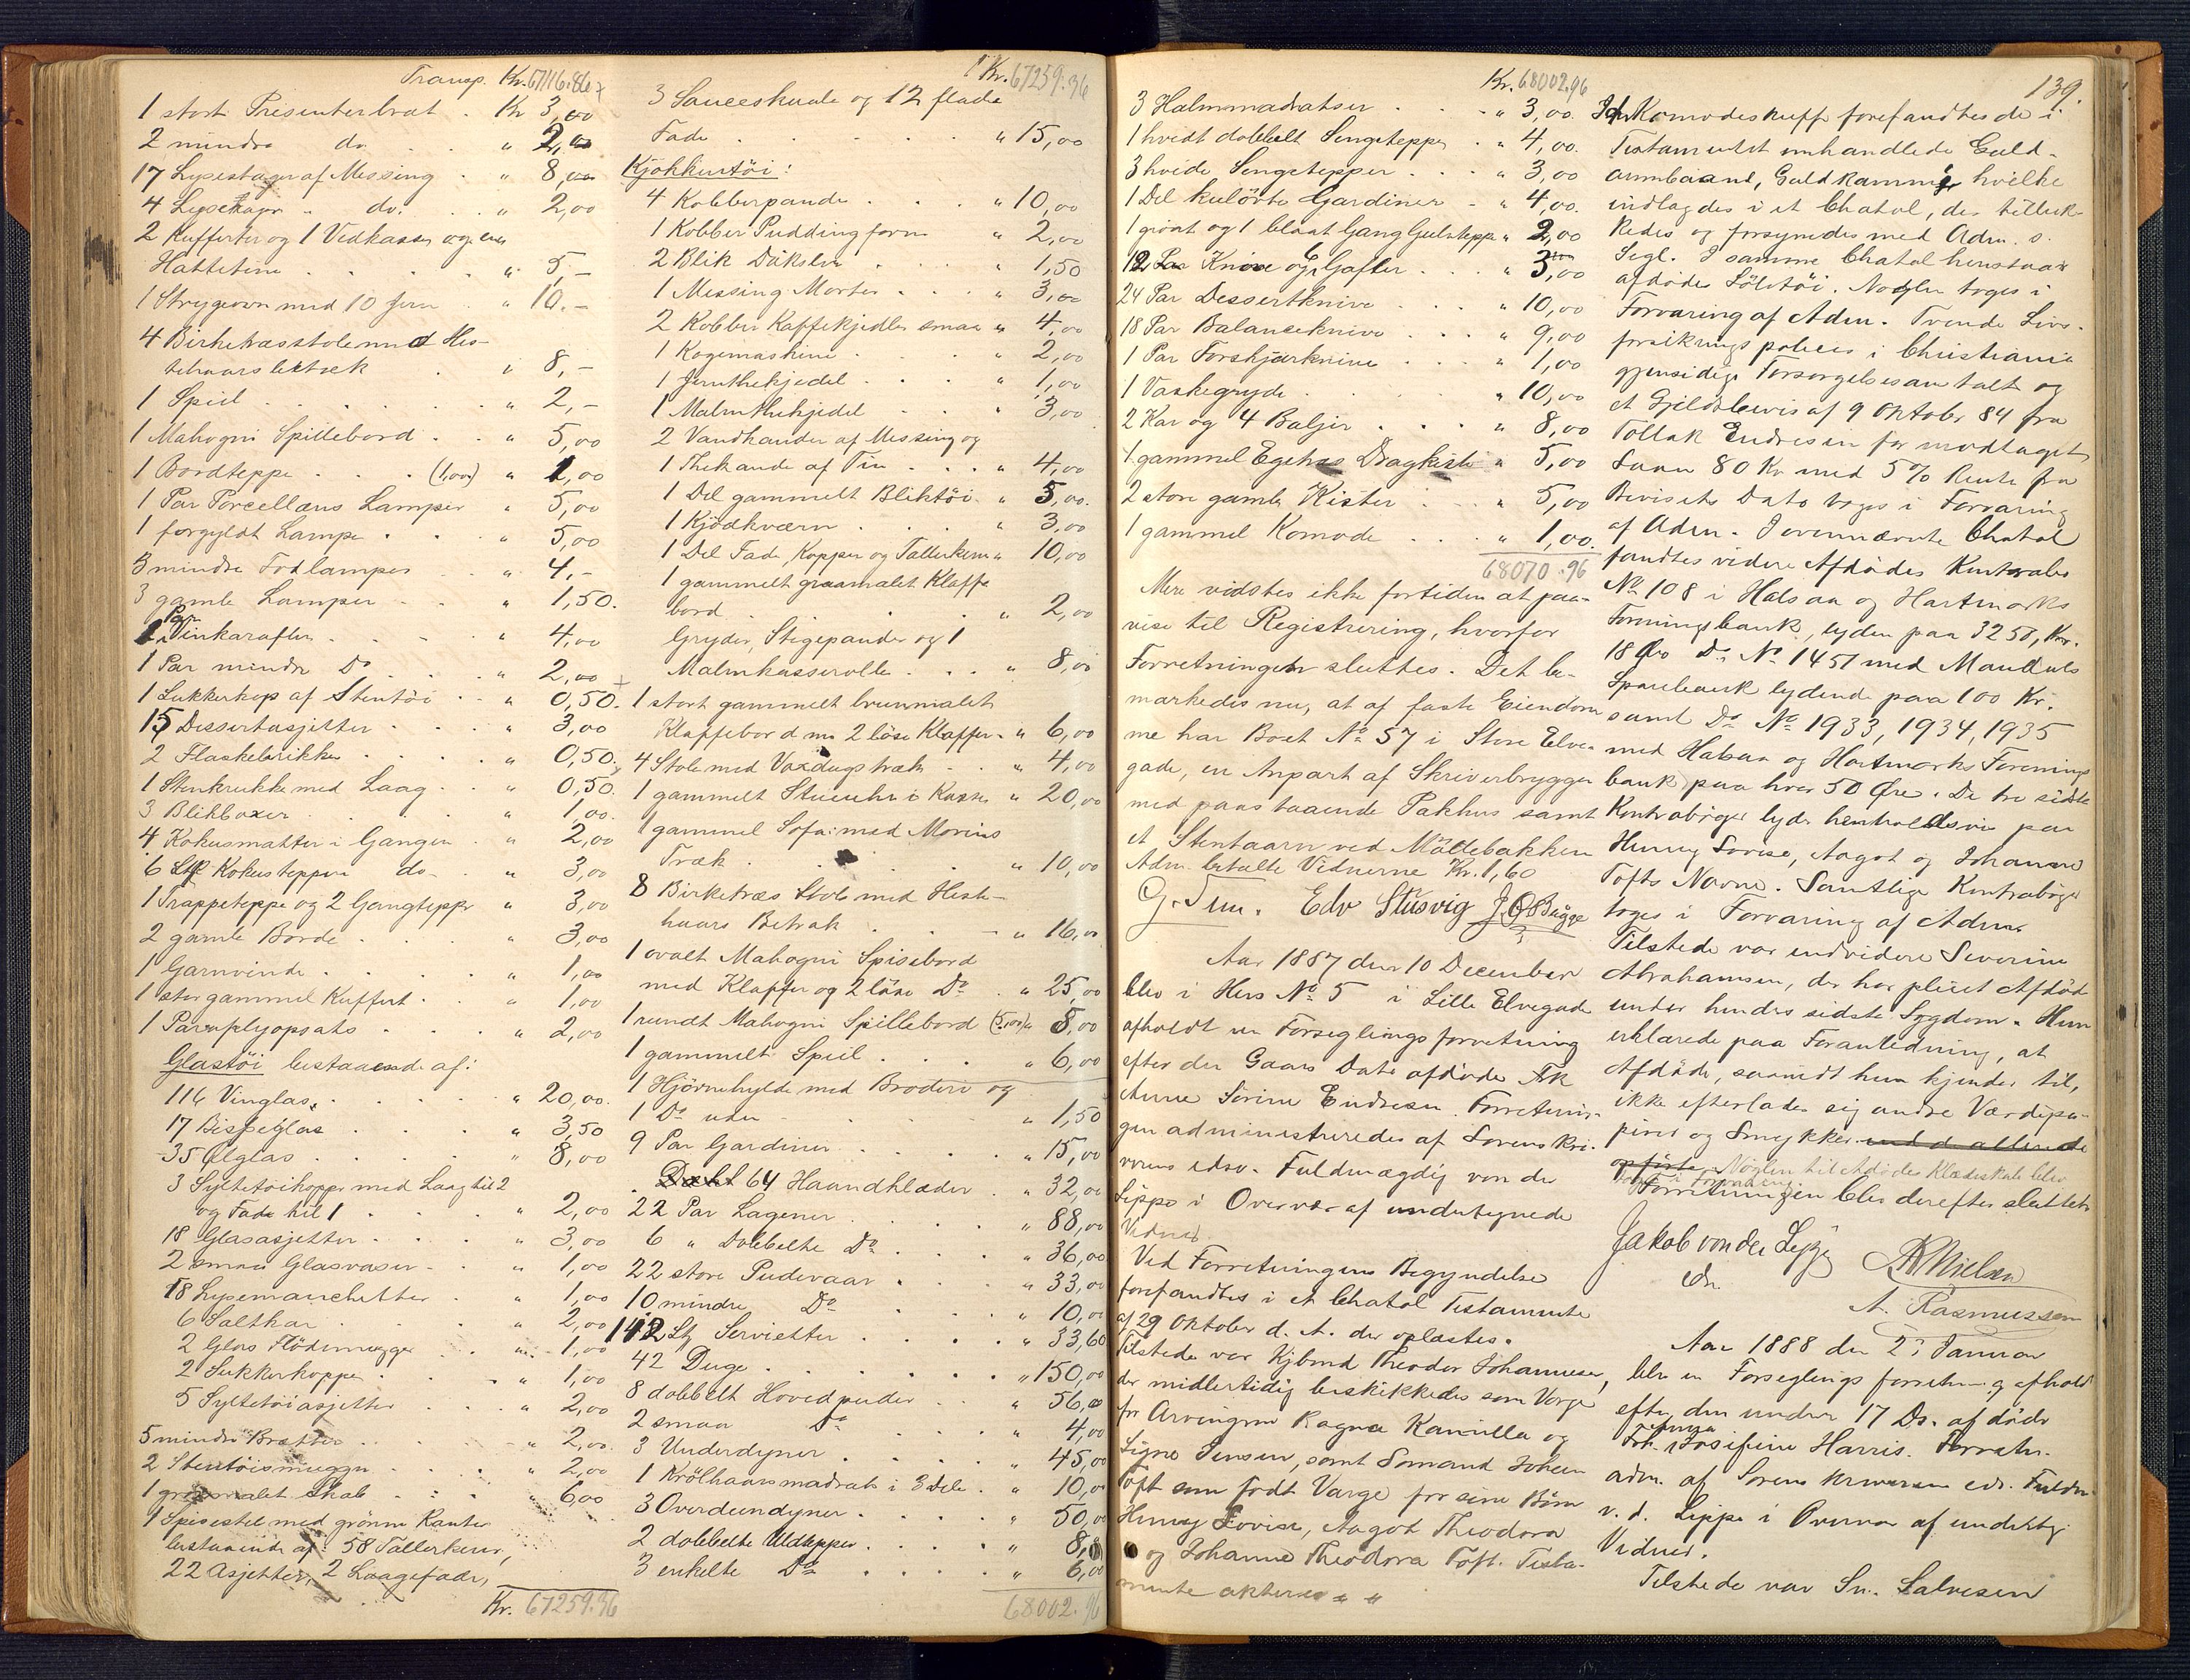 Transp. Kr. 67116.86
1 stort Presenterbræt . Kr 3,00
2 mindre do. . . " 2,00
17 Lysestager af Messing . " 8,00
4 Lysestager " do. . . " 2,00
2 Kufferter og 1 Vedkasse og en
Hattetine . . . . " 5,–
1 Strygeovn med 10 Jern . " 10.–
4 Birketræsstole med Hes-
tehaarsbetræk . " 8,–
1 Speil . . . . . " 2,–
1 Mahogni Spillebord . . " 5,00
1 Bordteppe . . . (1,00) " 1,00
1 Par Porcellæns Lamper " 5,00
1 forgyldt Lampe . . " 5,00
3 mindre Fodlamper . . " 4,–
3 gamle Lamper . . " 1,50.
1 Par Vinkarafler . . . " 4,00
1 Par mindre Do . . . " 2,00
1 Sukkerkop af Stentöi . . " 0,50.
15 Dessertasjetter . . . " 3,00
2 Flaskebrikker . . . " 0,50.
1 Stenkrukke med Laag . . " 0,50.
3 Blikboxer . . . . " 1,00.
4 Kokusmatter i Gangen . " 2,00
6 Stk Kokusteppen do- . " 3,00
1 Trappeteppe og 2 Gangtepper " 3,00
2 gamle Borde . . . . " 3,00
1 Garnvinde . . . . " 1,00
1 stor gammel Kuffert . . " 1,00
1 Paraplyopsats . . . " 2,00
Glastöi bestaaende af:
116 Vinglas . . . . " 20,00.
17 Bispeglas . . . " 3,50
35 Ølglas . . . . " 8,00
3 Syltetöikopper med Laag til 2
og Fade til 1 . . . " 2,00
18 Glasasjetter . . . " 3,00
2 smaa Glasvaser . . " 1,00
18 Lysemanchetter . . " 1,00
6 Saltkar . . . . " 2,00
2 Glas Flödemugger . " 1,00
2 Sukkerkopper . . . " 1,00
5 Syltetöiasjetter . . . " 2,00
5 mindre Brætter . . . " 2,00.
2 Stentöismugger . . . " 2,00
1 graamalet Skab . . " 6,00
1 Spisestel med grönne Kanter
bestaaende af: 58 Tallerkener,
22 Asjetter, 2 Laagefade,
Kr. 67259.36
Kr. 67259.36
3 Sauceskaale og 12 flade
Fade . . . . . " 15,00
Kjökkentöi:
4 Kobberpander . . . " 10,00
1 Kobber Puddingform " 2,00
2 Blik Dükslen . . . " 1,50
1 Messing Morter . . . " 3,00
2 Kobber Kaffekjedler smaa " 4,00
1 Kogemaskine . . . " 2,00
1 Jernthekjedel . . . " 1,00
1 Malmthekjedel . . . " 3,00
2 Vandkander af Messing og
1 Thekande af Tin . . . " 4,00
1 Del gammelt Bliktöi . " 5,00.
1 Kjödkværn . . . " 3,00
1 Del Fade, Kopper og Tallerkener " 10,00
1 gammelt graamalet Klaffe
bord . . . . " 2,00
Gryder, Stegepander og 1
Malmkasserolle . . . " 8,00
1 stort gammelt brunmalet
Klaffebord m 2 löse Klaffer . " 6,00
4 Stole med Voxdugstræk . . " 4,00
1 gammelt Stueuhr i Kasse " 20,00
1 gammel Sofa: med Moriens
Træk . . . . . " 10,00
8 Birketræs Stole med Heste-
haars Betræk . . . " 16,00
1 ovalt Mahogni Spisebord
med Klaffer og 2 löse Do . " 25,00
1 rundt Mahogni Spillebord (5,00) " 8,00
1 gammelt Speil . . . " 6,00
1 Hjörnehylde med Broderi og
1 Do uden . . . " 1,50
9 Par Gardiner . . . . " 15,00
64 Haandklæder . . " 32,00
22 Par Lagener . . . . " 88,00
6 " Dobbelte Do . . . " 36,00
22 store Pudevaar . . . " 33,00
10 mindre Do . . . " 10,00
112 Stk Servietter . . . " 33,60
42 Duge . . . . . " 150,00
8 dobbelt Hovedpuder . . " 56,00
2 smaa Do . . . " 4,00
3 Underdyner . . . . " 45,00
1 Krölhaarsmadrats i 3 Dele . " 10,00
3 Overdundyner . . . " 50,00
2 dobbelte Uldtepper . . . " 8,00
3 enkelte Do . . . . " 6,00
68002.96
Kr. 68002.96
3 Halmmadratser . . . " 3,00.
1 hvidt dobbelt Sengeteppe . " 4,00.
3 hvide Sengetepper . . . " 3,00
1 Del kulörte Gardiner . " 4,00.
1 graat og 1 blaat Gang Gulvteppe " 2,00
12 Knive og 6 Gafler . . . " 3,00
24 Par Dessertknive . . " 10,00
18 Par Balanceknive . . . " 9,00
1 Par Forskjærknive . . . " 1,00
1 Vaskegryde . . . . " 10,00
2 Kar og 4 Baljer . . . " 8,00
1 gammel Egetræs Dragkiste " 5,00
2 store gamle Kister . . " 5,00
1 gammel Komode . . . " 1,00.
68070.96
Mere vidstes ikke fortiden at paa-
vise til Registrering, hvorfor
Forretningen sluttes. Det be-
mærkedes nu, at af faste Eiendom
me har Boet No 57 i Store Elve-
gade, en Anpart af Skriverbryggen
med paastaaende Pakhus samt
et Stentaarn ved Möllebakken
Adm. betalte Vidnerne Kr. 1,60
G. Edv Stusvig J. O. Bugge
Aar 1887 den 10 December
blev i Hus No 5 i Lille Elvegade
afholdt en Forseglingsforretning
efter den Gaars Dato afdöde Frk
Anne Sörine Endresen. Forretnin-
gen administreredes af Sorenskri-
verens edsv. Fuldmægdig von der
Lippe i Overvær af undertegnede
Vidner.
Ved Forretningens Begyndelse
forefandtes i et Chatol Testamente
af 29 Oktober d. A. der oplæstes.
Tilstede var Kjbmd Theodor Johannesen,
der midlertidig beskikkedes som Værge
for Arvingerne Ragna Kamilla og
Signe Jensen, samt Sömand Johan
Toft som födt Værge for sine Börn
Henny Lovise, Aagot Theodora
og Johanne Theodora Toft. Testa-
mente
139.
I en Komodeskuffe forefandtes de i
Testamentet omhandlede Guld-
armbaand, Guldkamme hvilke
indlagdes i et Chatol, der tilluk-
kedes og forsynedes med Adm. s.
Segl. I samme Chatol henstaar
afdödes Sölvtöi. Nöglen toges i
Forvaring af Adm. Tvende Livs-
forsikringspolicer i Christiania
gjensidige Forsörgelsesanstalt og
et Gjeldsbevis af 9 Oktober 84 fra
Tollak Endresen for modtaget
Laan 80 Kr med 5 % Rente fra
Bevisets Dato toges i Forvaring
af Adm. I ovennævnte Chatol
fandtes videre Afdödes Kontrabog
No 108 i Halsaa og Hartmarks
Foreningsbank, lyden paa 3250, Kr.
18 Øre Do No 1451 med Mandals
Sparebank lydende paa 100 Kr.
samt Do No 1933, 1934, 1935
med Halsaa og Hartmarks Forenings
bank paa hver 50 Øre. De tre sidste
Kontraböger lyder henholdsvis paa
Henny Lovise, Aagot og Johanne
Tofts Navne. Samtlige Kontraböger
toges i Forvaring af Adm.
Tilstede var endvidere Severine
Abrahamsen, der har pleiet Afdöde
under hendes sidste Sygdom. Hun
erklærede paa Foranledning, at
Afdöde, saavidt hun kjender til,
ikke efterlader sig andre Værdipa-
pirer og Smykker end de allerede
opförte. Nöglen til Afdödes Klædeskab blev
Forretningen blev derefter sluttet
Jakob von der Lippe
edsv.
Nielsen
A. Rasmussen
Aar 1888 den 2? Januar
blev en Forseglingsforretning afholdt
efter den under 17 Ds. afdöde
Frk. Josefine Harris. Forretn.
adm. af Sorenskriverens eds. Fuldm.
v. d. Lippe i Overvær af underteg.
Vidner.
Tilstede var Sn. Salvesen